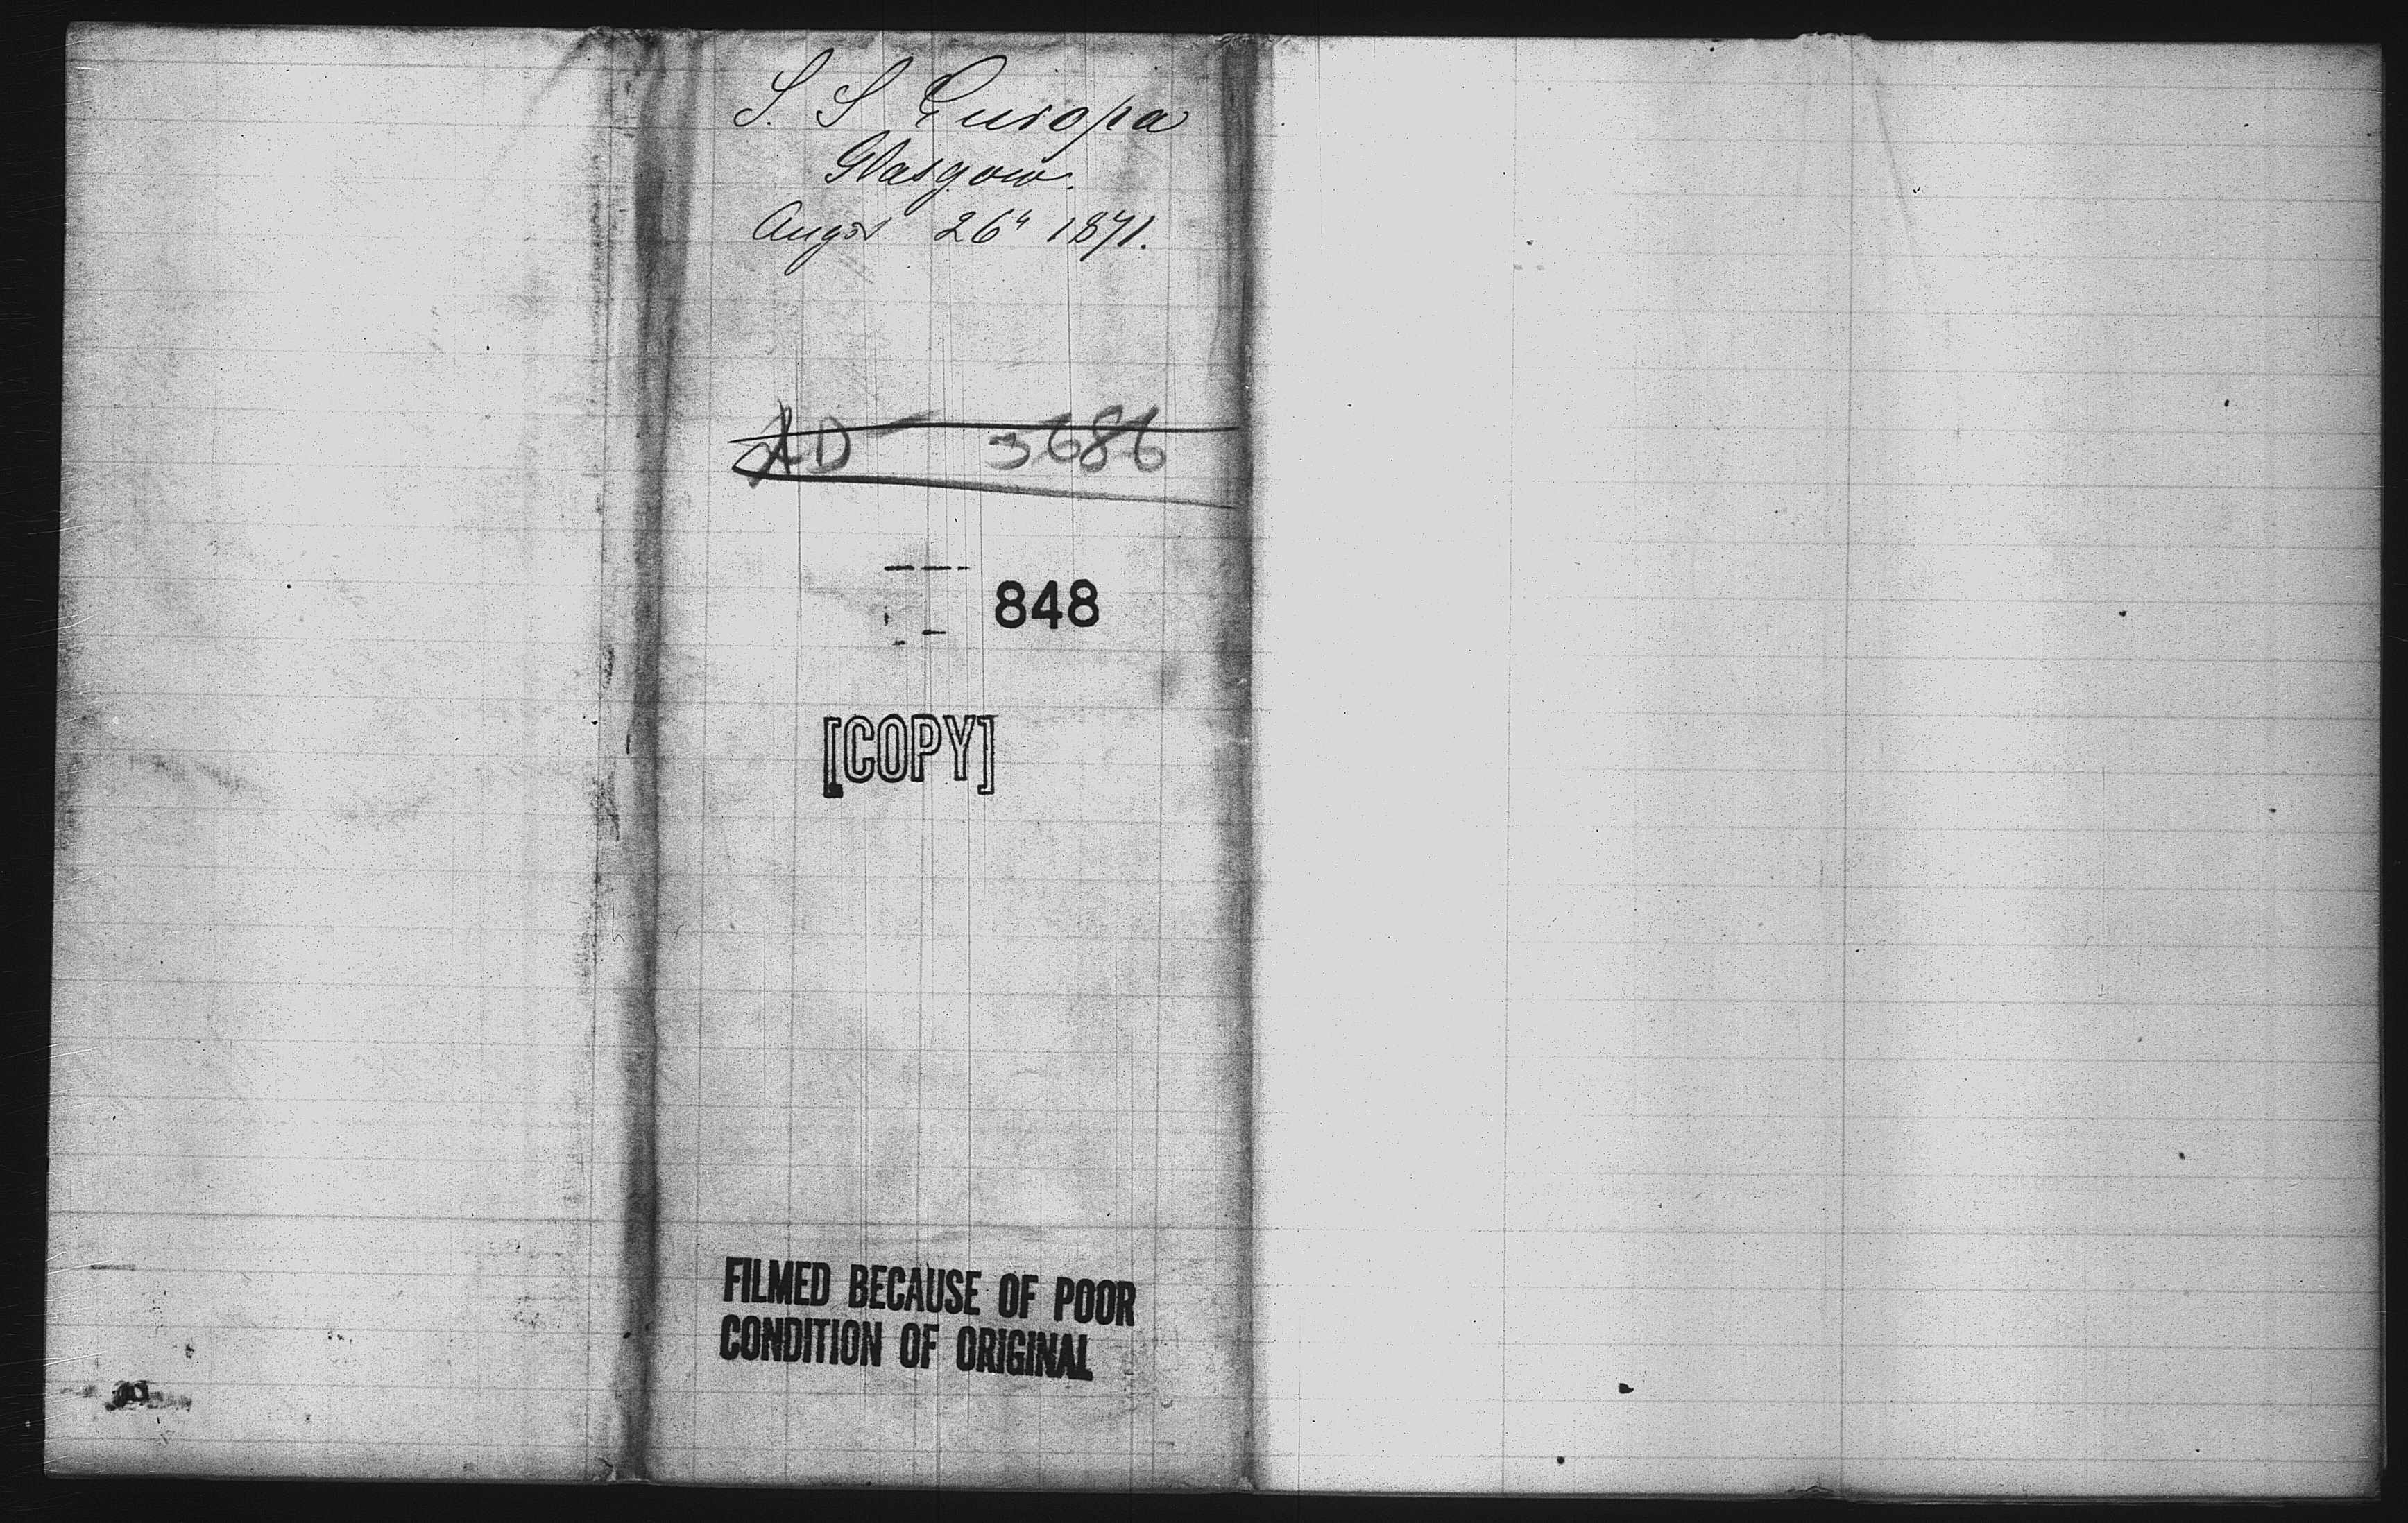 S. S Europa
Glasgow.
Augst 26" 1871.
AD 3686
848
[COPY]
FILMED BECAUSE OF POOR
CONDITION OF ORIGINAL